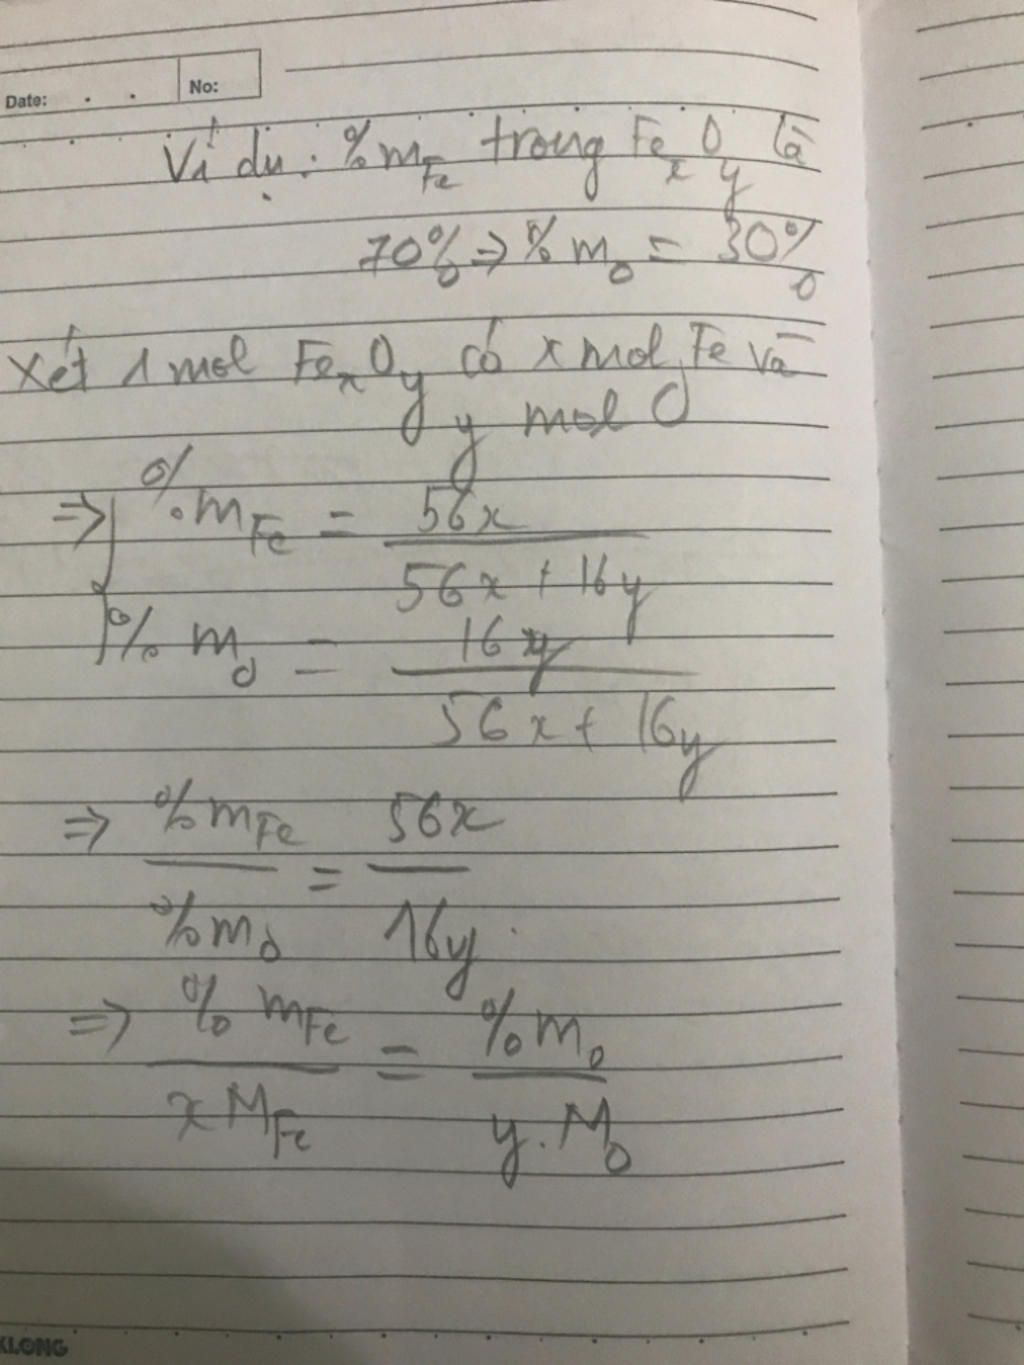 Date: . . No:
Ví dụ: %m_Fe trong Fe_xO_y là
70% => %m_O = 30%
Xét 1 mol Fe_xO_y có x mol Fe và
y mol O
=> { %m_Fe = 56x / (56x + 16y)
%m_O = 16y / (56x + 16y)
=> %m_Fe / %m_O = 56x / 16y
=> %m_Fe / xM_Fe = %m_O / y.M_O
KLONG